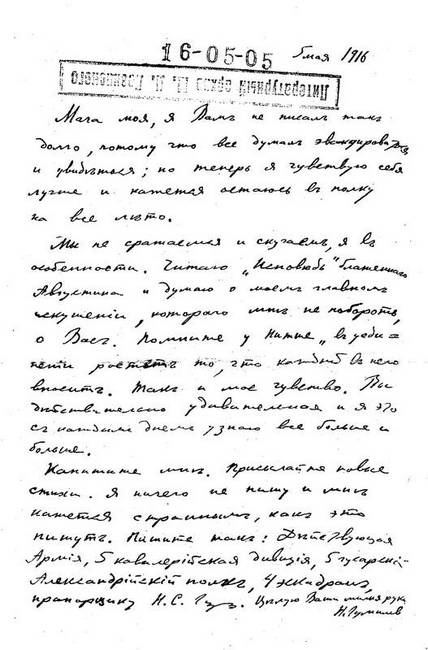 16-05-05
5 мая 1916
Литературный архив П. Л. Вакселя
Мага моя, я Вамъ не писал такъ
долго, потому что все думалъ эвакуироваться
и увидѣться; но теперь я чувствую себя
лучше и кажется остаюсь въ полку
на все лѣто.
Мы не сражаемся и скучаемъ, я въ
особенности. Читаю „Исповѣдь“ блаженнаго
Августина и думаю о моемъ главномъ
искушеніи, котораго мнѣ не побороть,
о Васъ. Помните у Нитше „въ уеди-
неніи растетъ то, что каждый въ него
вноситъ. Такъ и мое чувство. Вы
дѣйствительно удивительная и я это
съ каждымъ днемъ узнаю все больше и
больше.
Напишите мнѣ. Присылайте новые
стихи. Я ничего не пишу и мнѣ
кажется страннымъ, какъ это
пишутъ. Пишите такъ: Дѣйствующая
Армія, 5 кавалерійская дивизія, 5 гусарскій
Александрійскій полкъ, 4 эскадронъ,
прапорщику Н. С. Гум. Цѣлую Ваши милыя руки
Н. Гумилев